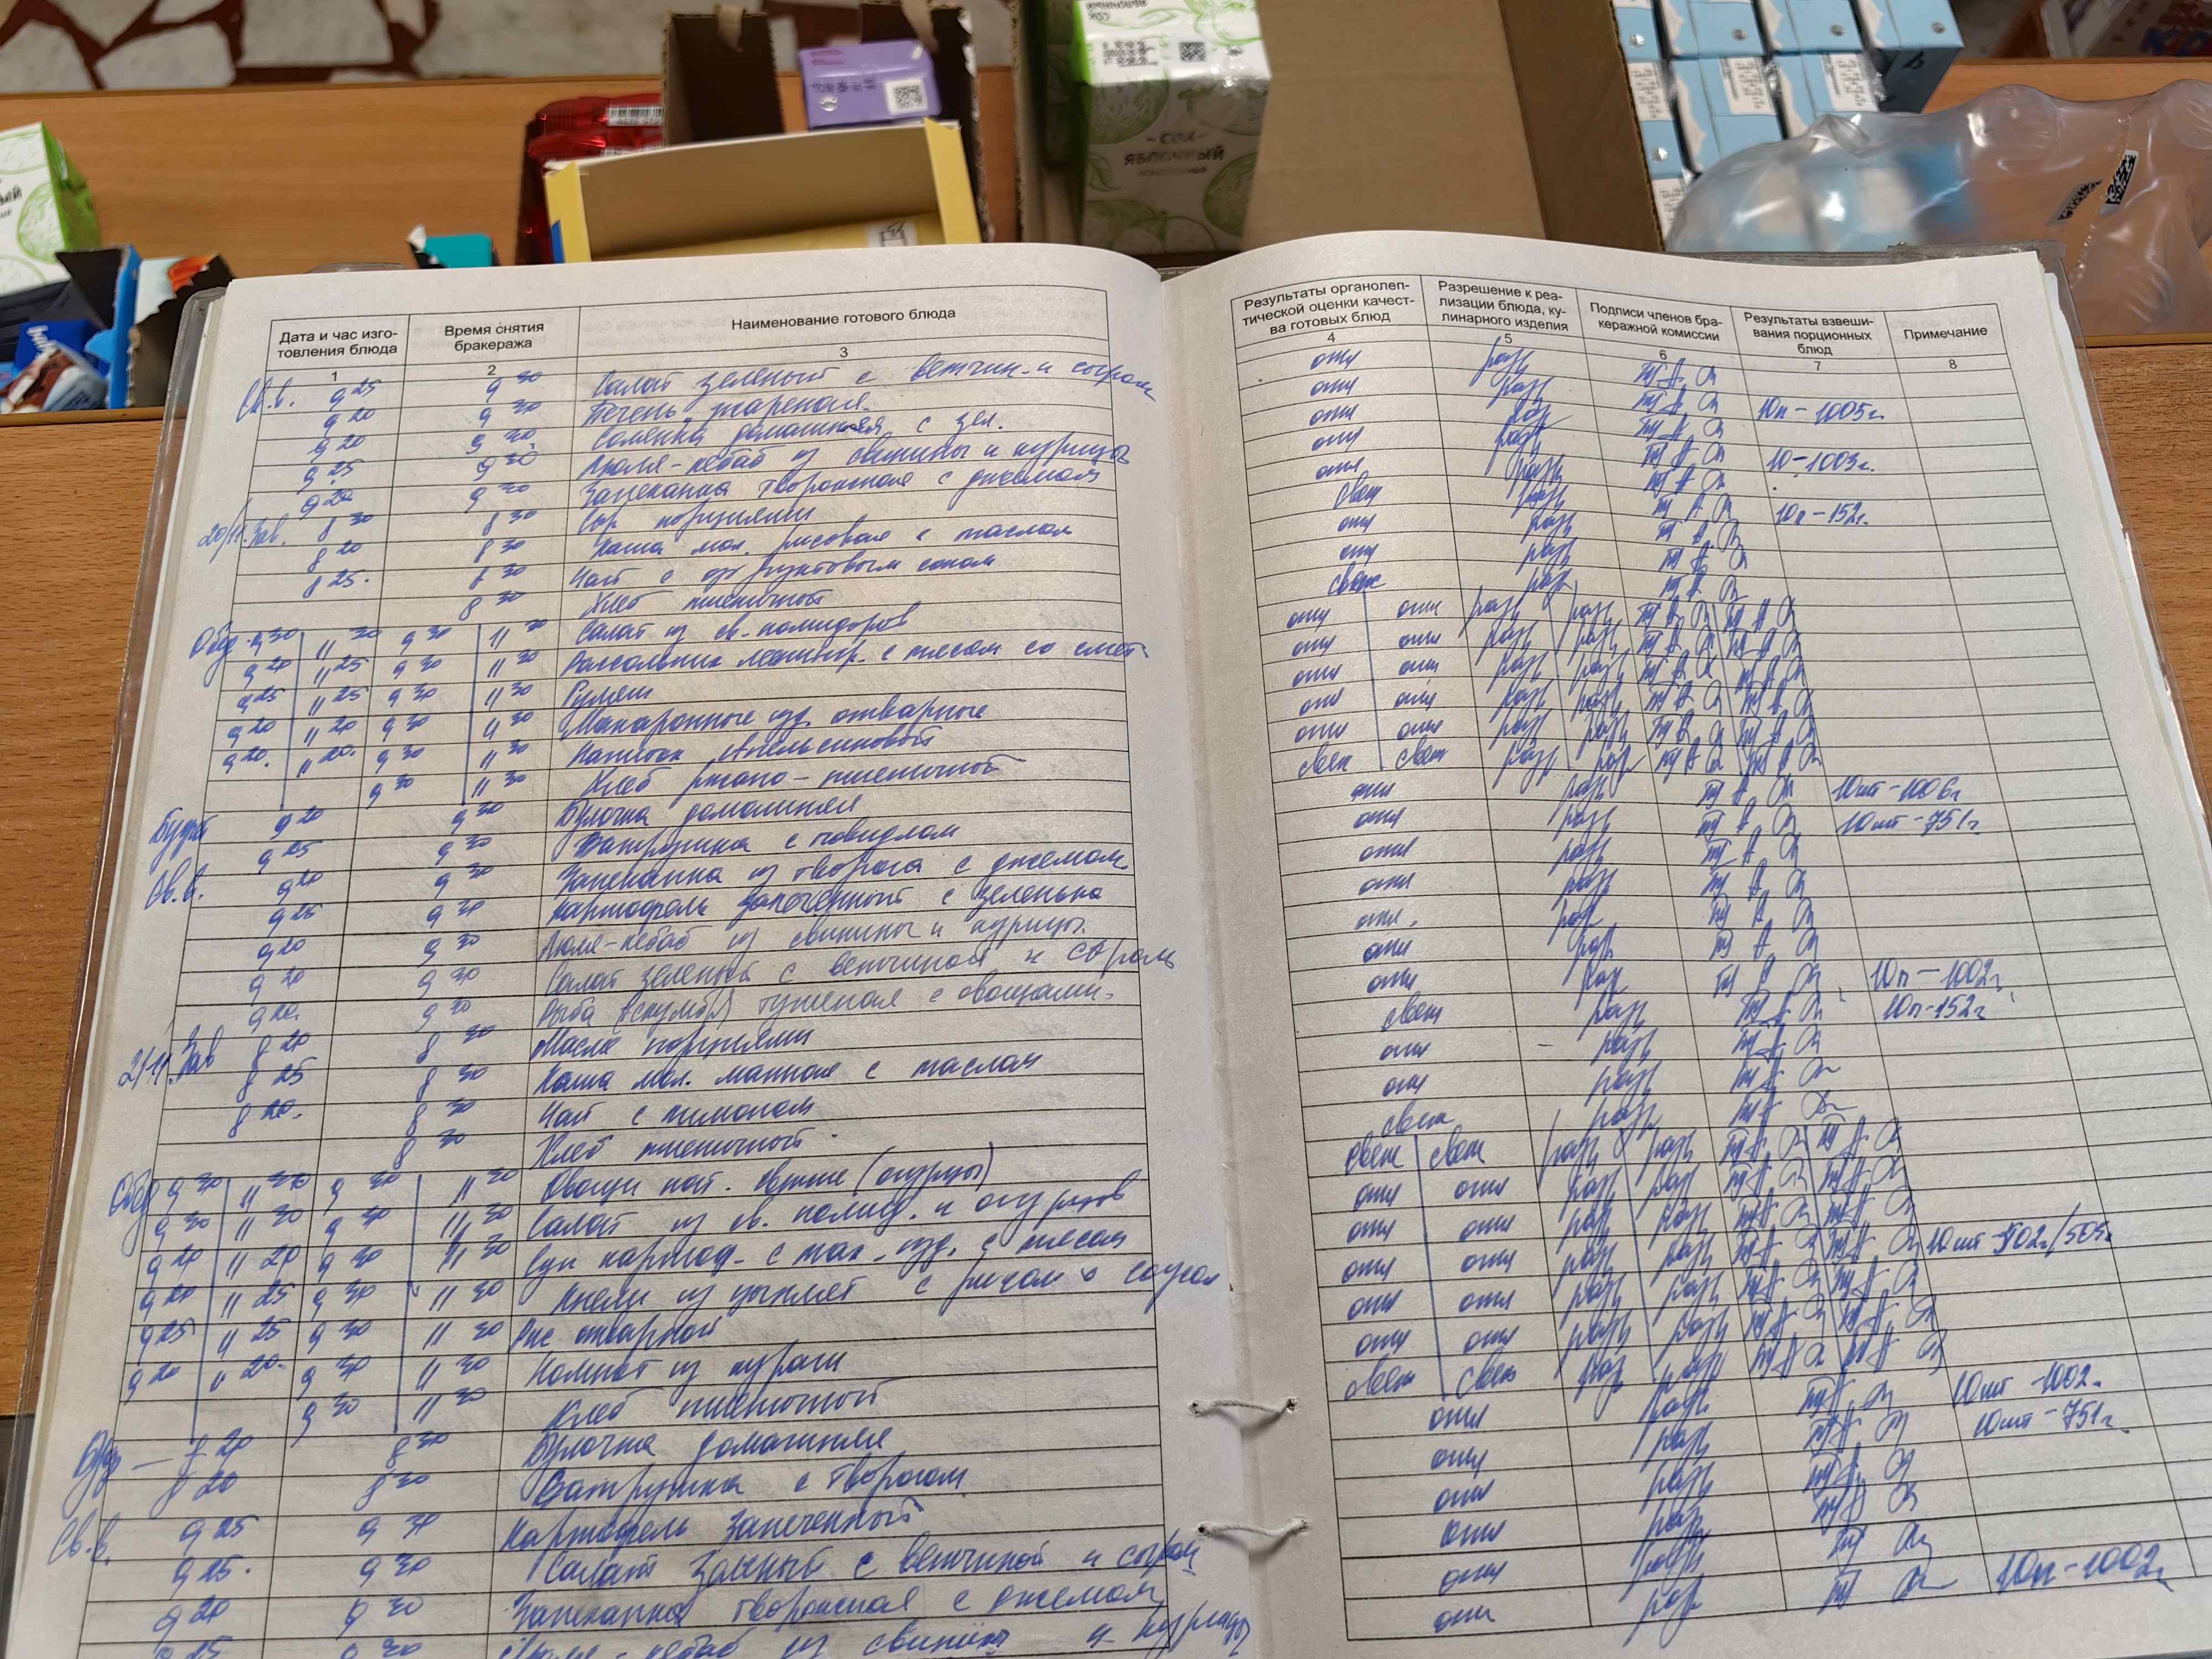 СОК
ЯБЛОЧНЫЙ
Дата и час изго-
товления блюда
Время снятия
бракеража
Наименование готового блюда
Результаты органолеп-
тической оценки качест-
ва готовых блюд
Разрешение к реа-
лизации блюда, ку-
линарного изделия
Подписи членов бра-
керажной комиссии
Результаты взвеши-
вания порционных
блюд
Примечание
1 2 3 4 5 6 7 8
Св.в. 9 25 9 30 Салат зеленый с ветчин. и сыром отл разр
9 20 9 30 Печень жареная отл разр 10п - 1005г.
9 20 9 30 домашняя с зел. отл разр
9 25 9 30 Люля-кебаб из свинины и курицы отл разр 10 - 1003г.
9 20 9 30 Запеканка творожная с джемом отл разр
20/11. Зав. 8 30 8 30 Сыр порциями свеж разр 10п - 152г.
8 20 8 30 Каша мол. рисовая с маслом отл разр
8 25. 8 30 Чай с фруктовым соком отл разр
8 30 Хлеб пшеничный свеж разр
Обед 9 30 11 30 9 30 11 30 Салат из св. помидоров отл отл разр разр
9 20 11 25 9 30 11 30 Рассольник ленингр. с мясом со смет. отл отл разр разр
9 25 11 25 9 30 11 30 Гуляш отл отл разр разр
9 20 11 20 9 30 11 30 Макаронные изд. отварные отл отл разр разр
9 20. 11 20. 9 30 11 30 Напиток апельсиновый отл отл разр разр
9 30 11 30 Хлеб ржано-пшеничный свеж свеж разр разр
Буфет 9 20 9 30 Булочка домашняя отл разр 10шт - 1006г
9 25 9 30 Ватрушка с повидлом отл разр 10шт - 751г
Св.в. 9 20 9 30 Запеканка из творога с джемом отл разр
9 25 9 30 Картофель запеченный с зеленью отл разр
9 20 9 30 Люля-кебаб из свинины и курицы. отл. разр
9 30 9 30 Салат зеленый с ветчиной и сыром отл разр
9 20. 9 30 Рыба (скумбр) тушеная с овощами. отл разр 10п - 1002г
21/11. Зав 8 20 8 30 Масло порциями свеж разр 10п - 152г
8 25 8 30 Каша мол. манная с маслом отл разр
8 20. 8 30 Чай с лимоном отл разр
8 30 Хлеб пшеничный свеж разр
Обед 9 30 11 30 9 30 11 30 Овощи нат. свежие (огурцы) свеж свеж разр разр
9 30 11 30 9 30 11 30 Салат из св. помид. и огурцов отл отл разр разр
9 20 11 20 9 30 11 30 Суп картоф. с мак. изд. с мясом отл отл разр разр
9 20 11 25 9 30 11 30 Кнели из цыплят с рисом с соусом отл отл разр разр 10шт - 502г/505г
9 25 11 25 9 30 11 30 Рис отварной отл отл разр разр
9 20 11 20. 9 30 11 30 Компот из кураги отл отл разр разр
9 30 11 30 Хлеб пшеничный свеж свеж разр разр
8 20 8 30 Булочка домашняя отл разр 10шт - 1002г
8 20 8 30 Ватрушка с творогом отл разр 10шт - 751г
Св.в. 9 25 9 30 Картофель запеченный отл разр
9 25. 9 30 Салат зеленый с ветчиной и сыром отл разр
9 20 9 30 Запеканка творожная с джемом отл разр
9 25 9 30 Люля-кебаб из свинины и курицы отл разр 10п - 1002г